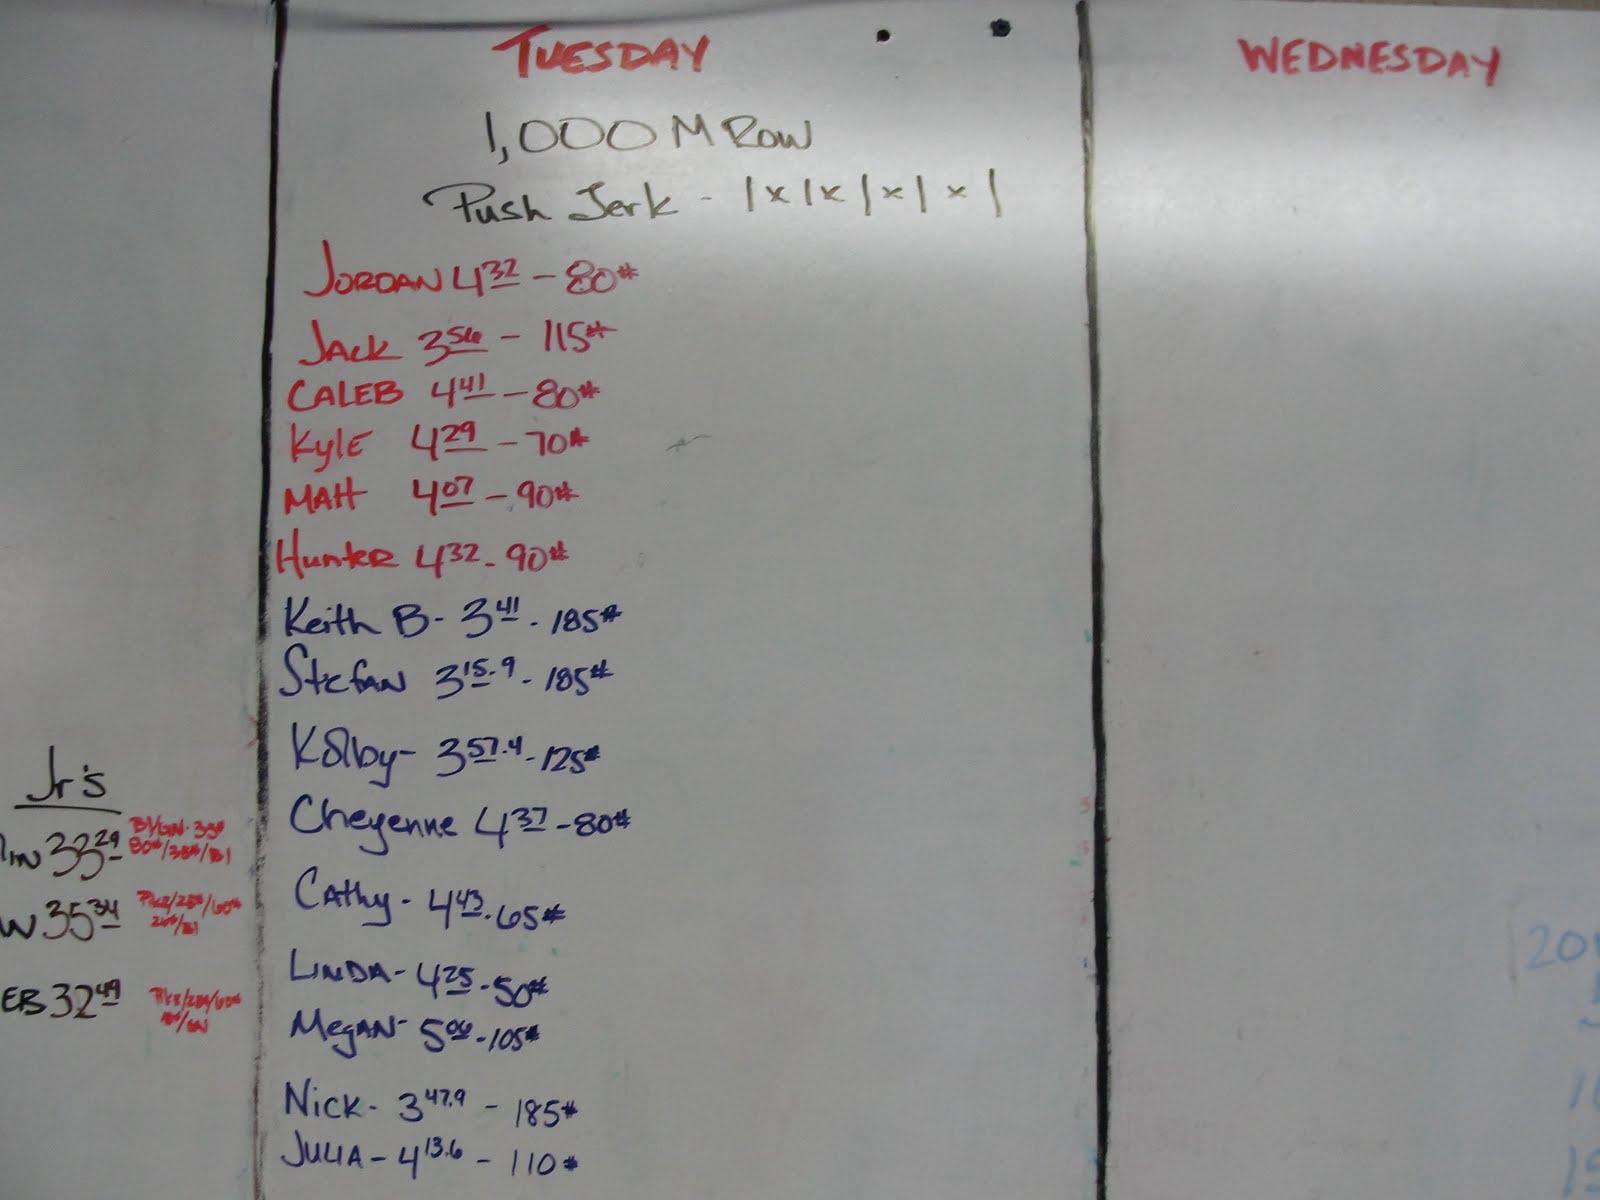 TUESDAY
1,000 M Row
Push Jerk - 1x1x1x1x1
JORDAN 4 32 - 80#
JACK 3 56 - 115#
CALEB 4 41 - 80#
KylE 4 29 - 70#
MATT 4 07 - 90#
HunteR 4 32 - 90#
Keith B - 3 41 - 185#
StefAN 3 15.9 - 185#
Kolby - 3 57.4 - 125#
Cheyenne 4 37 - 80#
CAthy - 4 43 - 65#
LINDA - 4 25 - 50#
MegAN - 5 06 - 105#
NicK - 3 47.9 - 185#
JULIA - 4 13.6 - 110#
WEDNESDAY
Jr's
33 29
W 35 34
EB 32 49